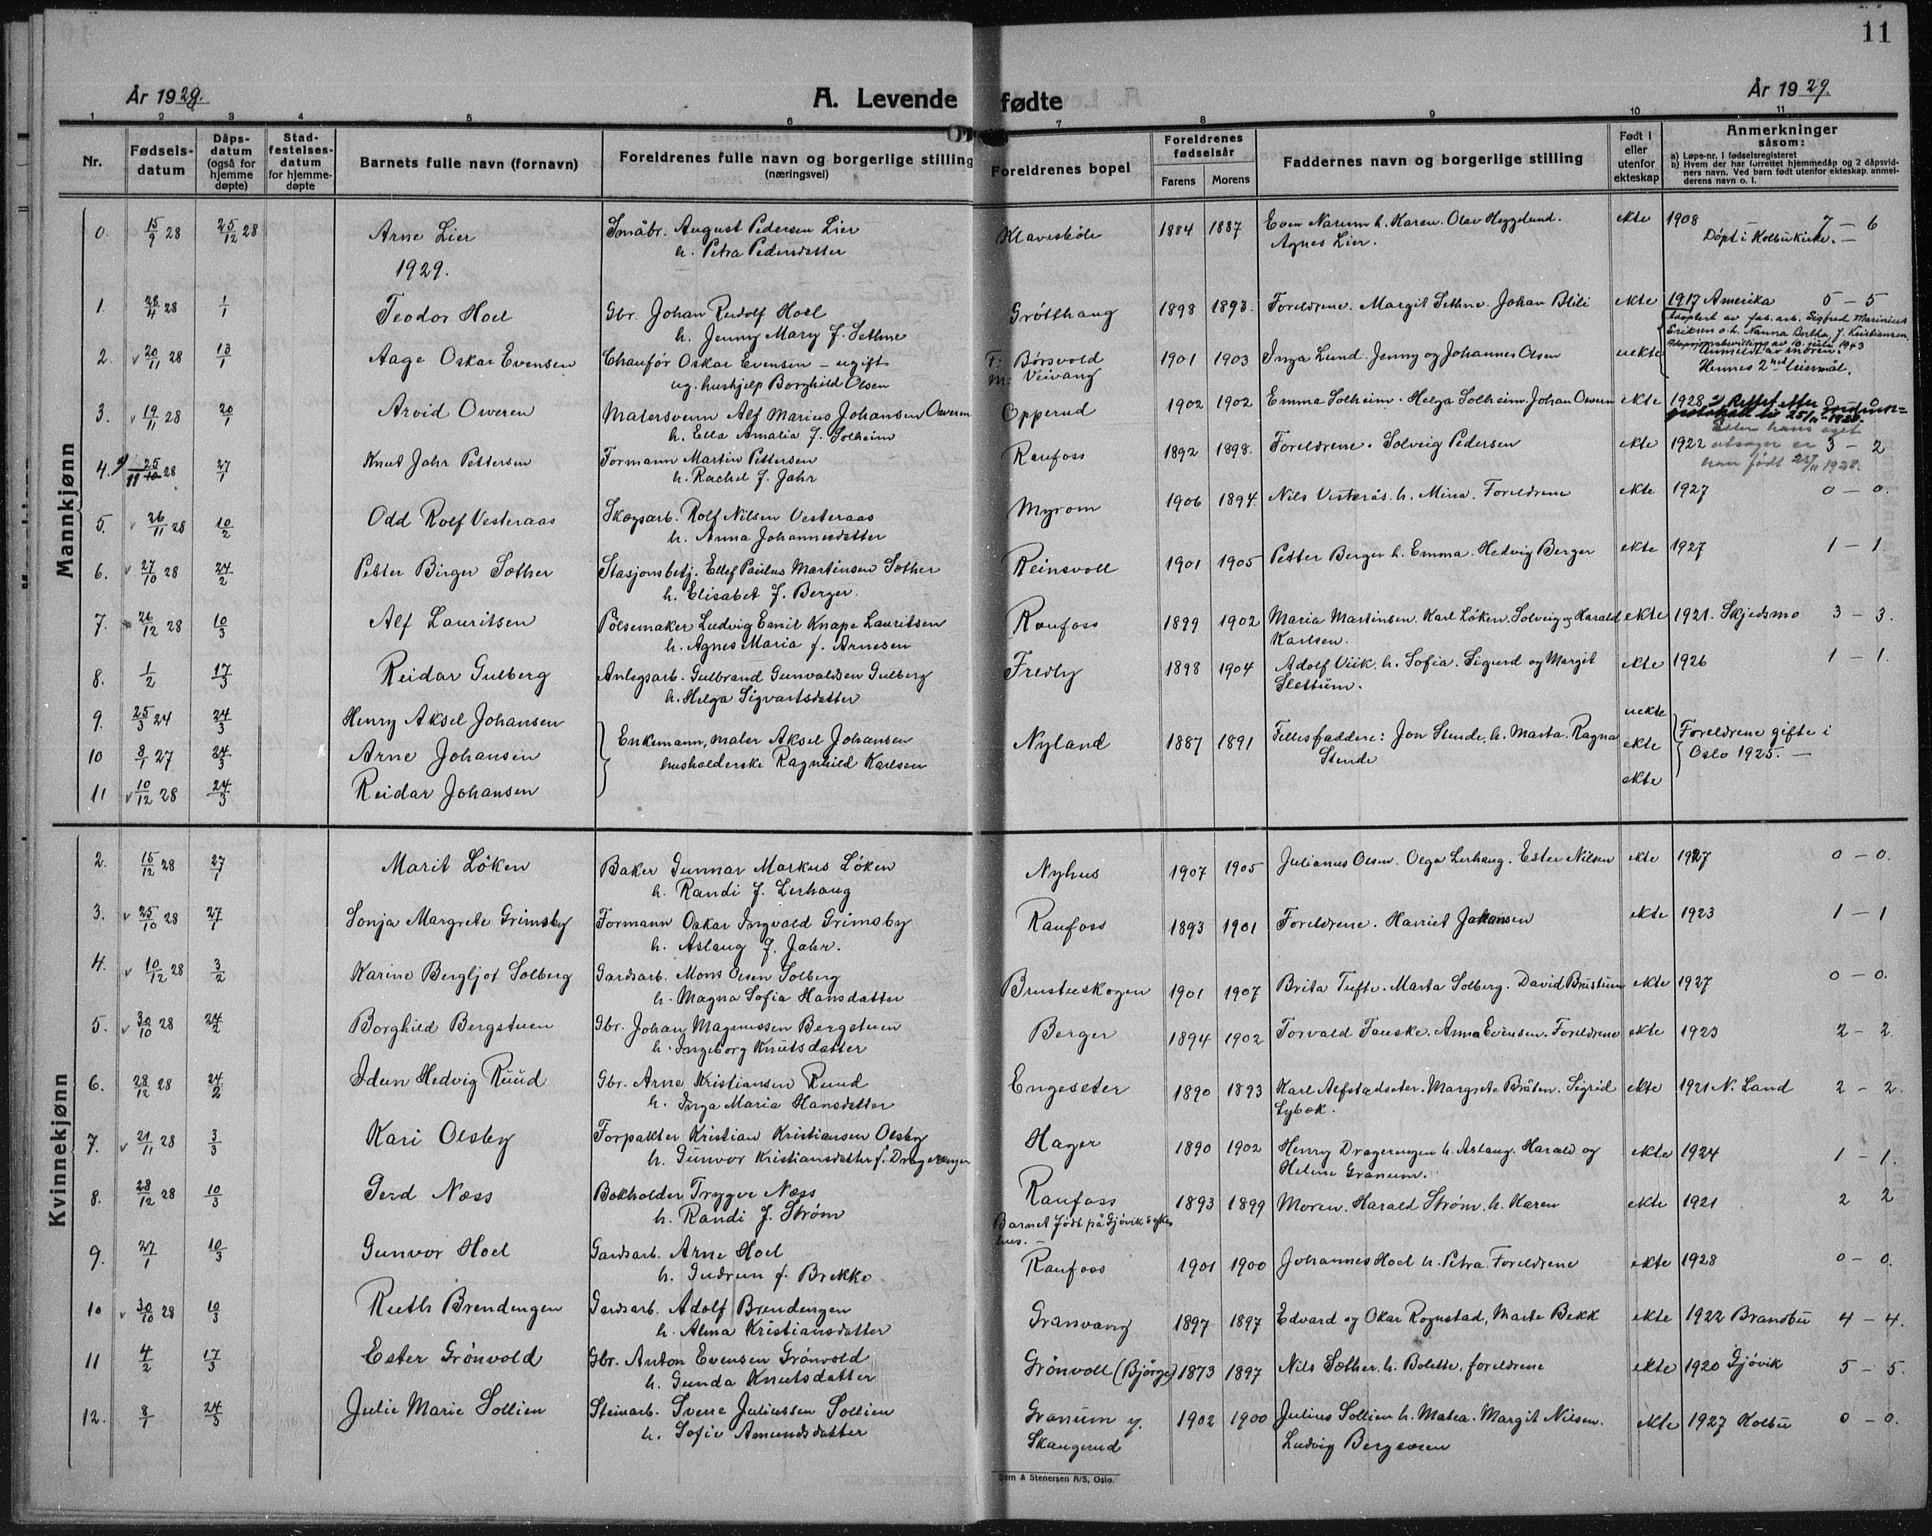 11
År 1929.
A. Levende fødte
År 1929.
1 2 3 4 5 6 7 8 9 10 11
Nr.
Fødsels-
datum
Dåps-
datum
(også for
hjemme
døpte)
Stad-
festelses-
datum
for hjemme-
døpte
Barnets fulle navn (fornavn)
Foreldrenes fulle navn og borgerlige stilling
(næringsvei)
Foreldrenes bopel
Foreldrenes
fødselsår
Farens Morens
Faddernes navn og borgerlige stilling
Født i
eller
utenfor
ekteskap
Anmerkninger
såsom:
a) Løpe-nr. i fødselsregisteret
b) Hvem der har forrettet hjemmedåp og 2 dåpsvid-
ners navn. Ved barn født utenfor ekteskap anmel-
derens navn o. l.
Mannkjønn
0. 15/9 28 25/12 28 Arne Lier Småbr. August Pedersen Lier Klavesbøle 1884 1887 Even Narum h. Karen. Olav Heggelund. ekte 1908 7 - 6
h. Petra Pedersdatter Agnes Lier. Døpt i Kolbu kirke. -
1929.
1. 28/4 28 1/1 Teodor Hoel Gbr. Johan Rudolf Hoel Grøtthaug 1898 1893. Foreldrene. Margit Sethne. Johan Blili ekte 1917 Amerika 5 - 5
h. Jenny Mary f. Sethne
Adoptert av fab. arb. Sigfred Marinius
Eriksen o. h. Nanna Bertha f. Kristiansen,
Adopsjonsbevilling av 10. juli 1943
2. v 20/11 28 13/1 Aage Oskar Evensen Chaufør Oskar Evensen - ugift F: Børsvold 1901 1903 Inga Lund. Jenny og Johannes Olsen uekte Anmeldt av moren.
ug. hushjelp Borghild Olsen M: Veivang Hennes 2net leiermål.
3. v 19/11 28 20/1 Arvid Oweren Malersvenn Alf Marius Johansen Oweren Opperud 1902 1902 Emma Solheim. Helga Solheim Johan Oweren ekte 1928 0 - 0
h. Ella Amalia f. Solheim
Rettet etter
Etter hans eget
utsagn er
han født 25/11 1928.
4. 25/10 28 11 27/1 Knut Jahr Pettersen Formann Martin Pettersen Raufoss 1892 1898. Foreldrene. Solveig Pedersen ekte 1922 3 - 2
h. Rachel f. Jahr
5. v 26/11 28 10/2 Odd Rolf Vesteraas Skogsarb. Rolf Nilsen Vesteraas Myrom 1906 1894 Nils Vesterås h. Mina. Foreldrene ekte 1927 0 - 0.
h. Anna Johannesdatter
6. v 27/10 28 24/2 Petter Birger Sæther Stasjonsbetj. Ellef Paulus Martinsen Sæther Reinsvoll 1901 1905 Petter Berger h. Emma. Hedvig Berger ekte 1927 1 - 1.
h. Elisabet f. Berger.
7. 26/12 28 10/3 Alf Lauritsen Pølsemaker Ludvig Emil Knape Lauritsen Raufoss 1899 1902 Maria Martinsen. Karl Løken. Solveig og Harald ekte 1921. Skjedsmo 3 - 3.
h. Agnes Maria f. Arnesen Karlsen.
8. 1/2 17/3 Reidar Gulberg Anlegsarb. Gulbrand Gunvaldsen Gulberg Fredly 1898 1904 Adolf Viik. h. Sofia. Sigurd og Margit ekte 1926 1 - 1.
h. Helga Sigvartsdatter Slettum.
9. 25/3 24 24/3 Henry Aksel Johansen uekte
10 8/1 27 24/3 Arne Johansen Enkemann, maler Aksel Johansen Nyland 1887 1891 Fellesfaddere: Jon Stende, h. Marta. Ragna ekte Foreldrene gifte i
husholderske Ragnhild Karlsen Stende Oslo 1925. -
11 v 10/12 28 24/3 Reidar Johansen ekte
Kvinnekjønn
2. 15/12 28 27/1 Marit Løken Baker Gunnar Markus Løken Nyhus 1907 1905 Julianus Olsen. Olga Lerhaug. Ester Nilsen ekte 1927 0 - 0.
h. Randi f. Lerhaug
3. v 25/10 28 27/1 Sonja Margrete Grimsby Formann Oskar Ingvald Grimsby Raufoss 1893 1901 Foreldrene. Harriet Johansen ekte 1923 1 - 1
h. Aslaug f. Jahr.
4. v 10/12 28 3/2 Karine Bergljot Solberg Gardsarb. Mons Olsen Solberg Brustuskogen 1901 1907 Brita Tufte. Marta Solberg. David Brustuen ekte 1927 0 - 0.
h. Magna Sofia Hansdatter
5. v 30/10 28 24/2 Borghild Bergstuen Gbr. Johan Magnussen Bergstuen Berger 1894 1902 Torvald Tauske. Anna Evensen. Foreldrene ekte 1923 2 - 2.
h. Ingeborg Knutsdatter
6. 28/12 28 24/2 Idun Hedvig Ruud Gbr. Arne Kristiansen Ruud Engeseter 1890 1893 Karl Alfstadseter. Margrete Bråten. Sigrid ekte 1921 N. Land 2 - 2.
h. Inga Maria Hansdatter Lybæk.
7. v 21/11 28 3/3 Kari Olsby Forpakter Kristian Kristiansen Olsby Hager 1890 1902 Henry Dragerengen h. Aslaug. Harald og ekte 1924 1 - 1.
h. Gunvor Kristiansdatter f. Dragerengen Helene Granum.
8. 28/12 28 10/3 Gerd Næss Bokholder Trygve Næss Raufoss 1893 1899 Moren. Harald Strøm h. Karen ekte 1921 2 2
h. Randi f. Strøm Barnet født på Gjøvik syke-
hus. -
9. 27/1 10/3 Gunvor Hoel Gardsarb. Arne Hoel Raufoss 1901 1900 Johannes Hoel h. Petra. Foreldrene ekte 1928 0 - 0.
h. Gudrun f. Brekke.
10 v 30/10 28 10/3 Ruth Brendengen Gardsarb. Adolf Brendengen Granvang 1897 1897 Edvard og Okar Rognstad, Marte Bekk ekte 1922 Brandbu 4 - 4.
h. Alma Kristiansdatter
11 4/2 17/3 Ester Grønvold Gbr. Anton Evensen Grønvold Grønvoll (Bjørge) 1873 1897 Nils Sæther h. Bolette, foreldrene ekte 1920 Gjøvik 5 - 5.
h. Gunda Knutsdatter
12. 8/1 24/3 Julie Marie Sollien Steinarb. Sverre Juliussen Sollien Granum y. 1902 1900 Julius Sollien h. Matea. Margit Nilsen. ekte 1927 Kolbu 0 - 0.
h. Sofie Amundsdatter Skaugerud Ludvig Bergsveen
Sem & Stenersen A/S, Oslo.